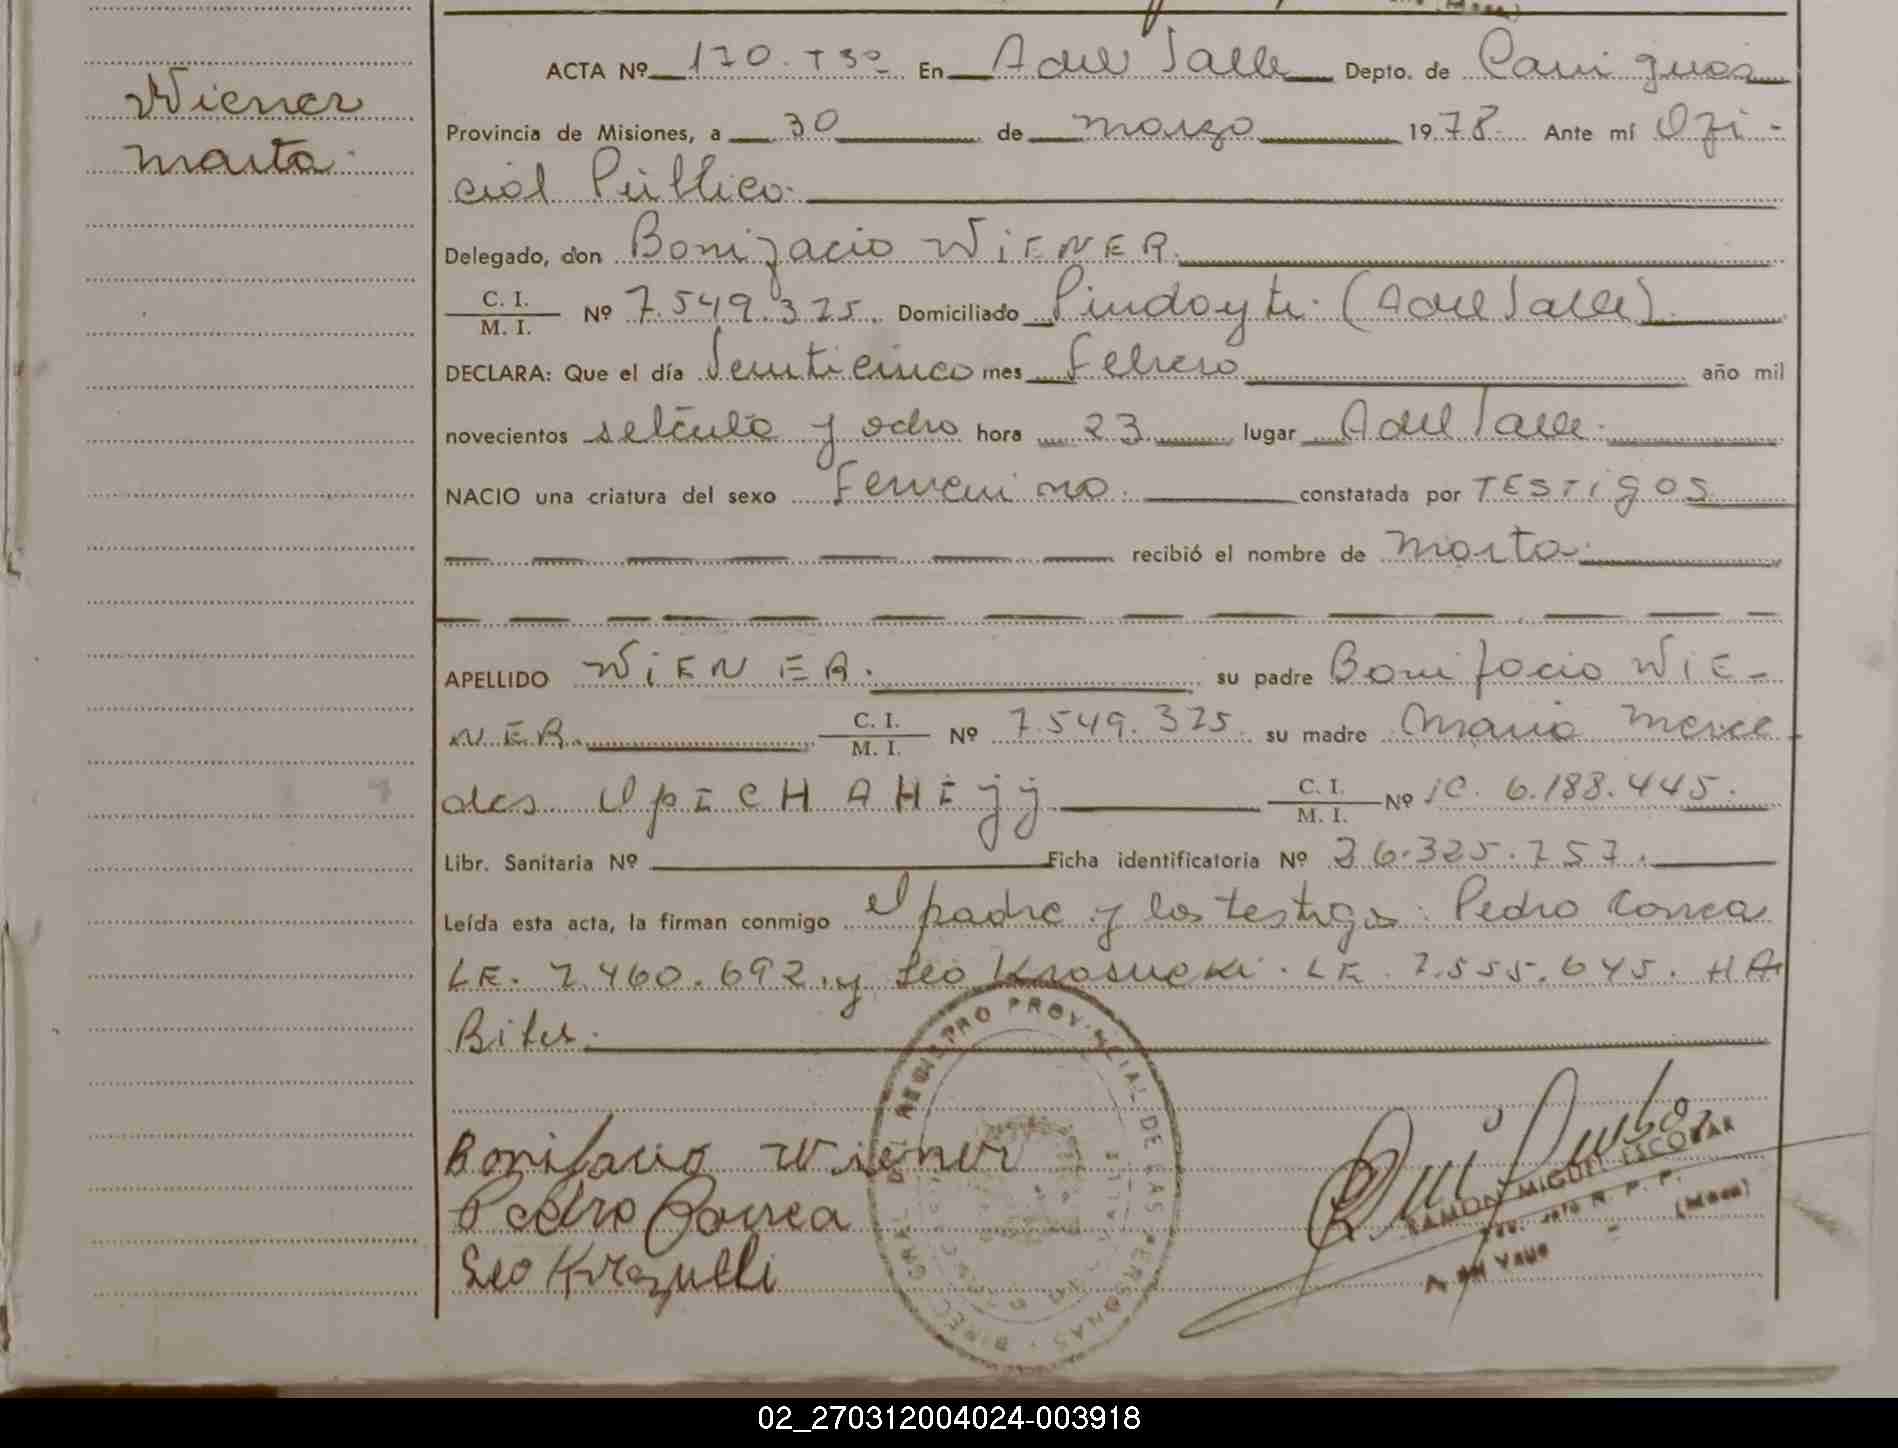 Wiener
Marta.
ACTA Nº 170. T3º En A del Valle Depto. de Cainguas
Provincia de Misiones, a 30 de marzo 1978. Ante mí Ofi-
cial Público.
Delegado, don Bonifacio WiENER.
C. I.
M. I. Nº 7.549.325. Domiciliado Pindoyti. (A del Valle)
DECLARA: Que el día Veinticinco mes Febrero año mil
novecientos setenta y ocho hora 23 lugar A del Valle.
NACIO una criatura del sexo Femenino. constatada por TESTigos
recibió el nombre de Marta.
APELLIDO WiENER. su padre Bonifacio WIE-
NER. C. I.
M. I. Nº 7.549.325. su madre Maria Merce
des C. I.
M. I. Nº iC. 6.188.445.
Libr. Sanitaria Nº Ficha identificatoria Nº 26.325.757.
Leída esta acta, la firman conmigo el padre y los testigos: Pedro Correa
LE. 7.460.692. y Leo LE. 7.555.645. HA
Biles.
Bonifacio Wiener
Pedro Correa
Leo
DIREC. GRAL. DEL REGISTRO PROVINCIAL DE LAS PERSONAS
RAMON MIGUEL ESCOBAR
R. P. P.
(Mnes)
02_270312004024-003918